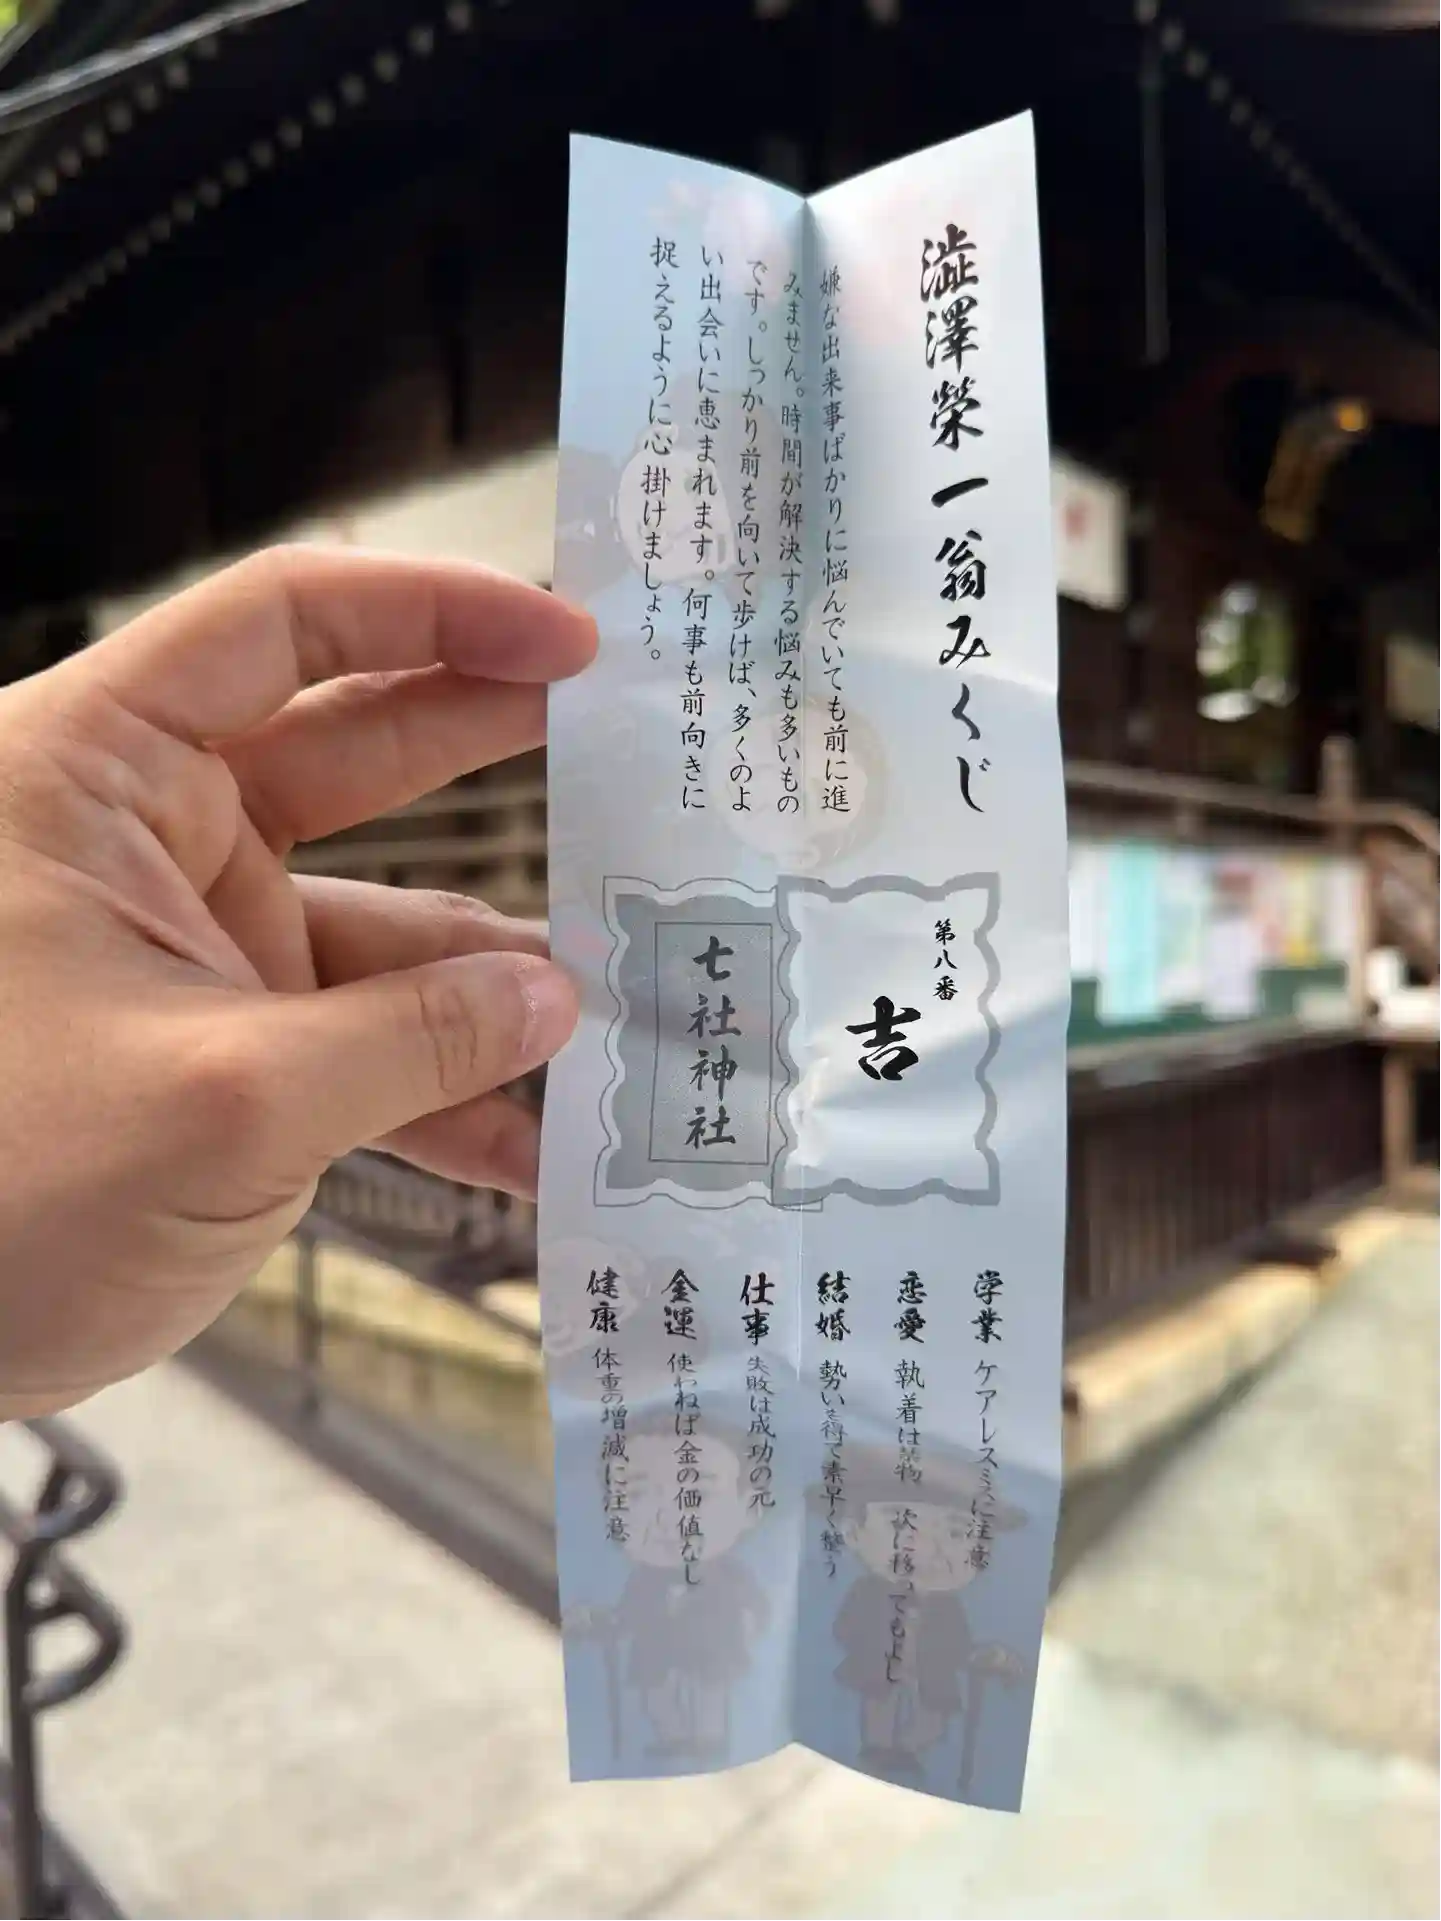 澁澤榮一翁みくじ
嫌な出来事ばかりに悩んでいても前に進
みません。時間が解決する悩みも多いもの
です。しっかり前を向いて歩けば、多くのよ
い出会いに恵まれます。何事も前向きに
捉えるように心掛けましょう。
第八番
吉
七社神社
学業 ケアレスミスに注意
恋愛 執着は禁物 次に移ってもよし
結婚 勢いを得て素早く整う
仕事 失敗は成功の元
金運 使わねば金の価値なし
健康 体重の増減に注意